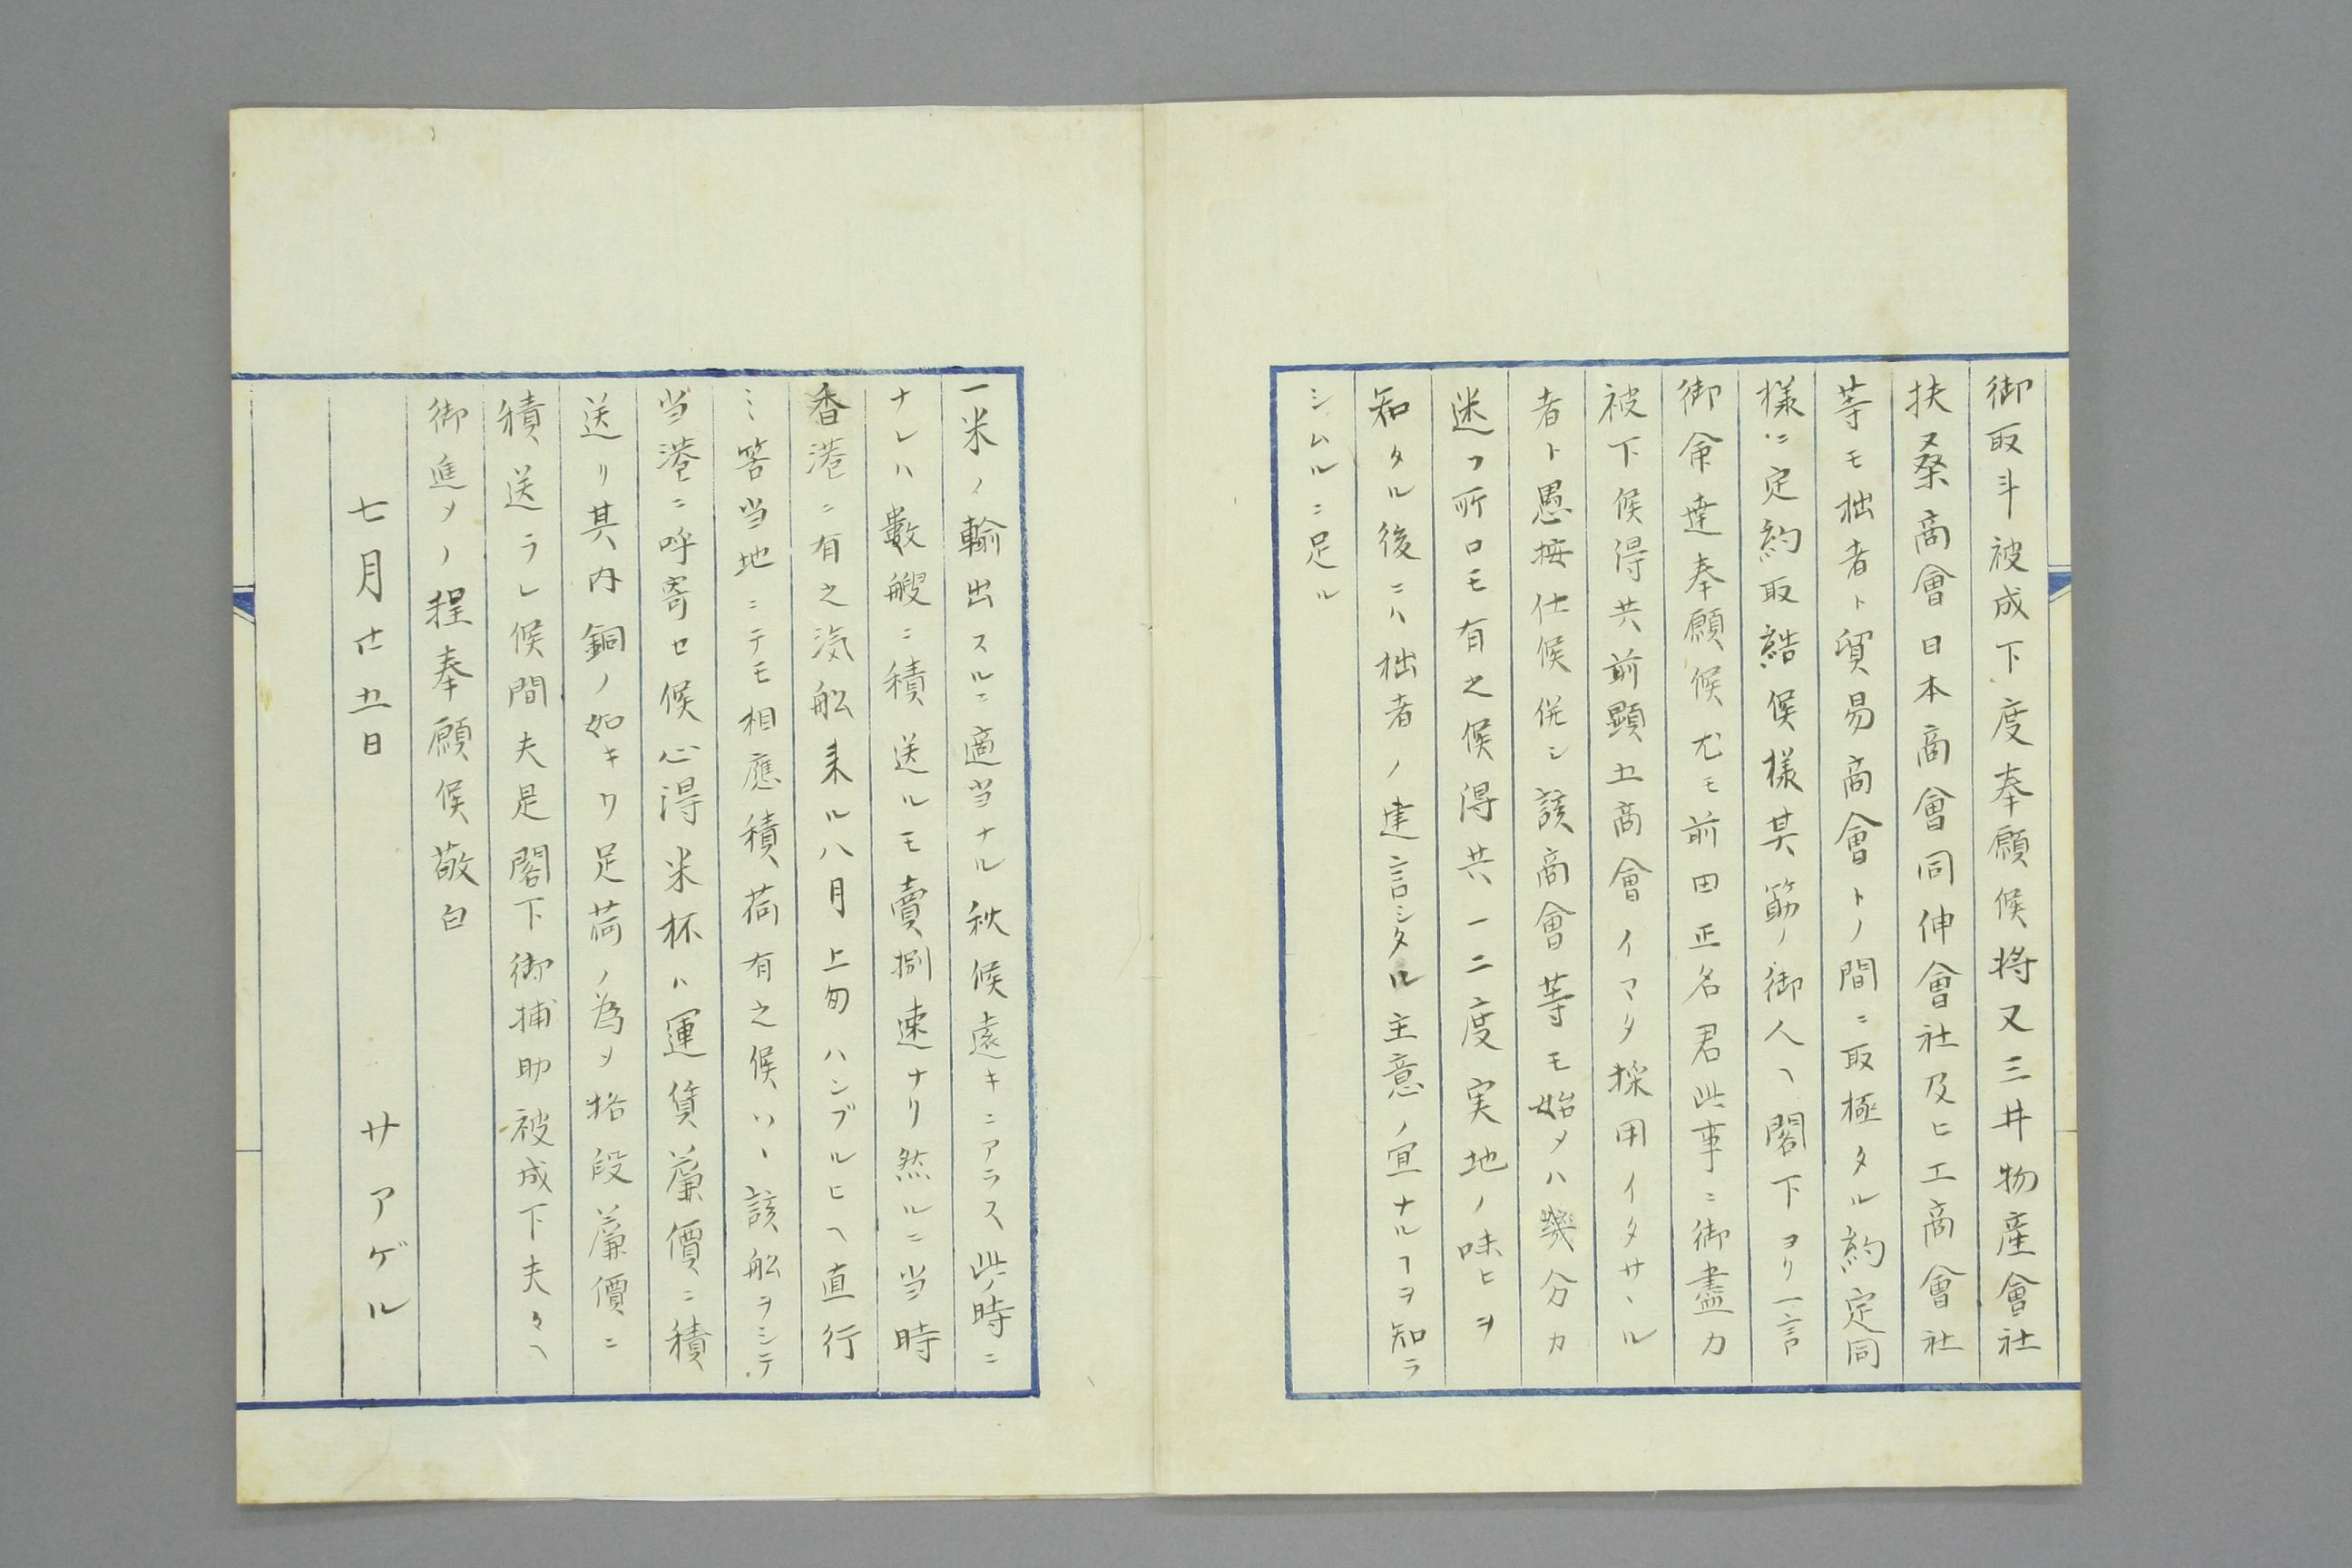 御取斗被成下度奉願候将又三井物産會社
扶桑商會日本商會同伸會社及ヒ工商會社
等モ拙者ト貿易商會トノ間ニ取極タル約定同
様ニ定約取結候様其筋ノ御人ヘ閣下ヨリ一言
御命達奉願候尤モ前田正名君此事ニ御盡力
被下候得共前顕五商會イマタ採用イタサヽル
者ト愚按仕候併シ該商會等モ始メハ幾分カ
迷フ所ロモ有之候得共一二度実地ノ味ヒヲ
知タル後ニハ拙者ノ建言シタル主意ノ宜ナルヿヲ知ラ
シムルニ足ル
一米ノ輸出スルニ適当ナル秋候遠キニアラス此ノ時ニ
ナレハ數艘ニ積送ルモ賣捌速ナリ然ルニ当時
香港ニ有之汽船来ル八月上旬ハンブルヒヘ直行
ミ筈当地ニテモ相應積荷有之候ハヽ該船ヲシテ
当港ニ呼寄セ候心得米杯ハ運賃蓙價ニ積
送リ其内銅ノ如キワ足荷ノ為メ格段蓙價ニ
積送ラレ候間夫是閣下御捕助被成下夫々ヘ
御進メノ程奉願候敬白
七月廿五日
サアゲル